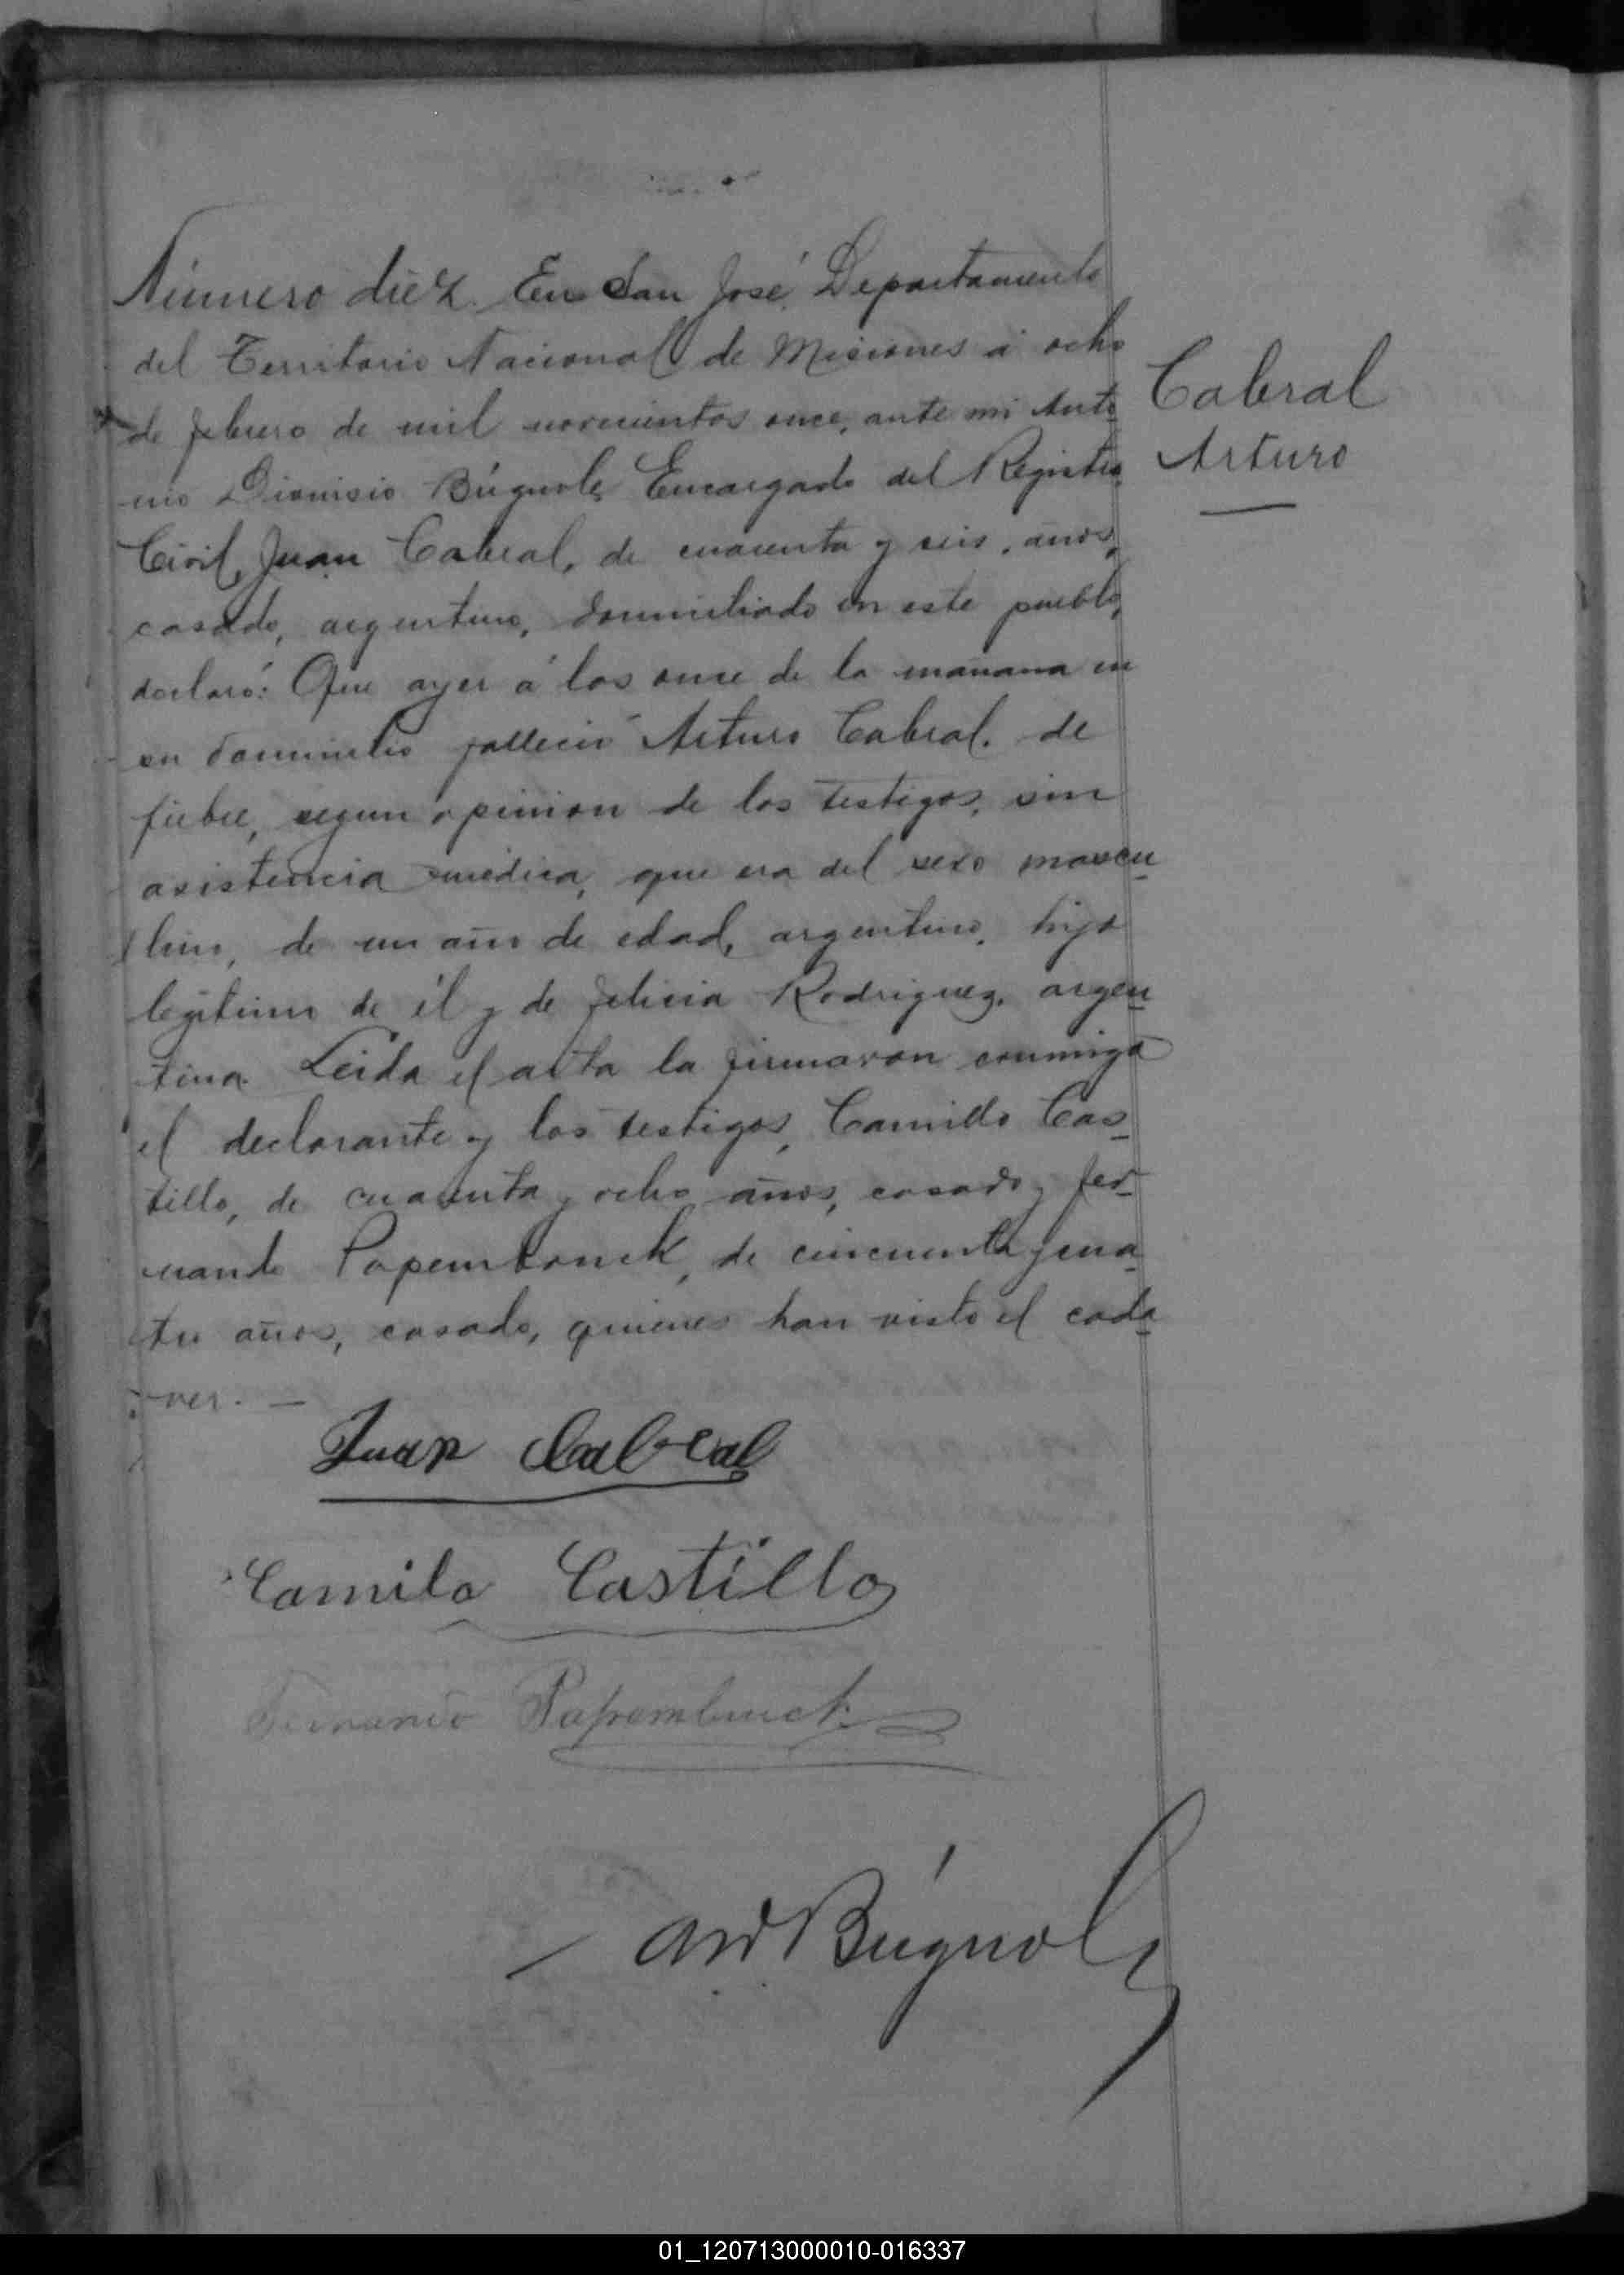 Número diez. En San José, Departamento
del Territorio Nacional de Misiones á ocho
de febrero de mil novecientos once, ante mi Anto
nio Dionisio Búgnoli, Encargado del Registro
Civil, Juan Cabral, de cuarenta y seis, años,
casado, argentino, domiciliado en este pueblo,
declaró: Que ayer á las once de la mañana en
su domicilio falleció Arturo Cabral. de
fiebre, segun opinion de los testigos, sin
asistencia médica, que era del sexo mascu
lino, de un año de edad, argentino, hijo
legítimo de él y de Felicia Rodriguez, argen
tina. Leida el acta la firmaron conmigo
el declarante y los testigos, Camilo Cas
tillo, de cuarenta y ocho años, casado y Fer
nando Papembronck, de cincuenta y cua
tro años, casado, quienes han visto el cada
ver. —
Cabral
Arturo
Juan Cabral
Camilo Castillo
Fernando Papembruck
AD Búgnoli
01_120713000010-016337